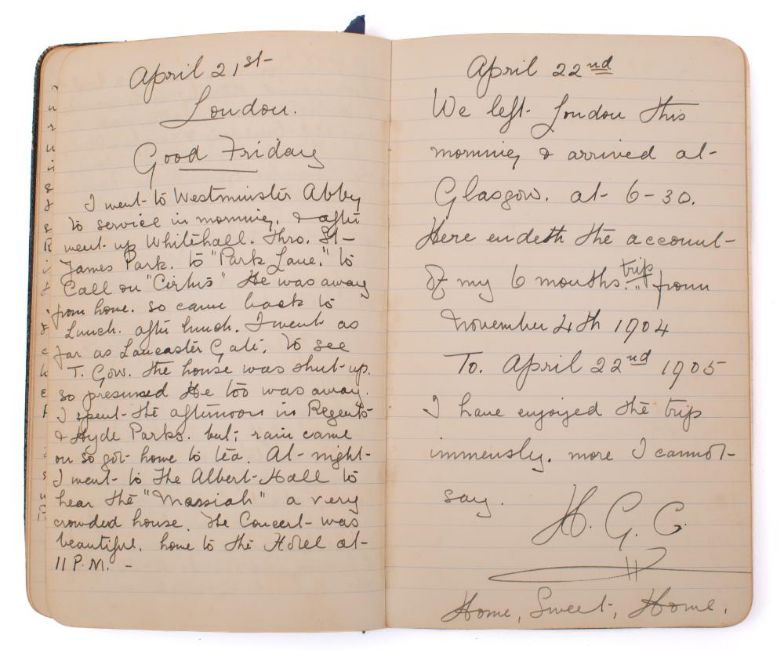 April 21st
London.
Good Friday
I went to Westminster Abby
to service in morning. & after
went up Whitehall. thro. St
James Park. to "Park Lane." to
Call on "Cirtis" He was away
from home. so came back to
Lunch. after lunch. I went as
far as Lancaster Gate. to see
T. Gow. the house was shut-up.
so presumed He too was away.
I spent the afternoon in Regents
& Hyde Parks. but; rain came
on so got home to tea. At-night
I went to The Albert-Hall to
hear the "Massiah" a very
crowded house. The Concert was
beautiful. home to the Hotel at
11 P.M. -
April 22nd
We left London this
morning & arrived at
Glasgow. at 6-30.
Here endeth the account
of my 6 months. trip from
November 4th 1904
To. April 22nd 1905
I have enjoyed the trip
immensly. more I cannot
say.
H. G. C.
Home, Sweet, Home.